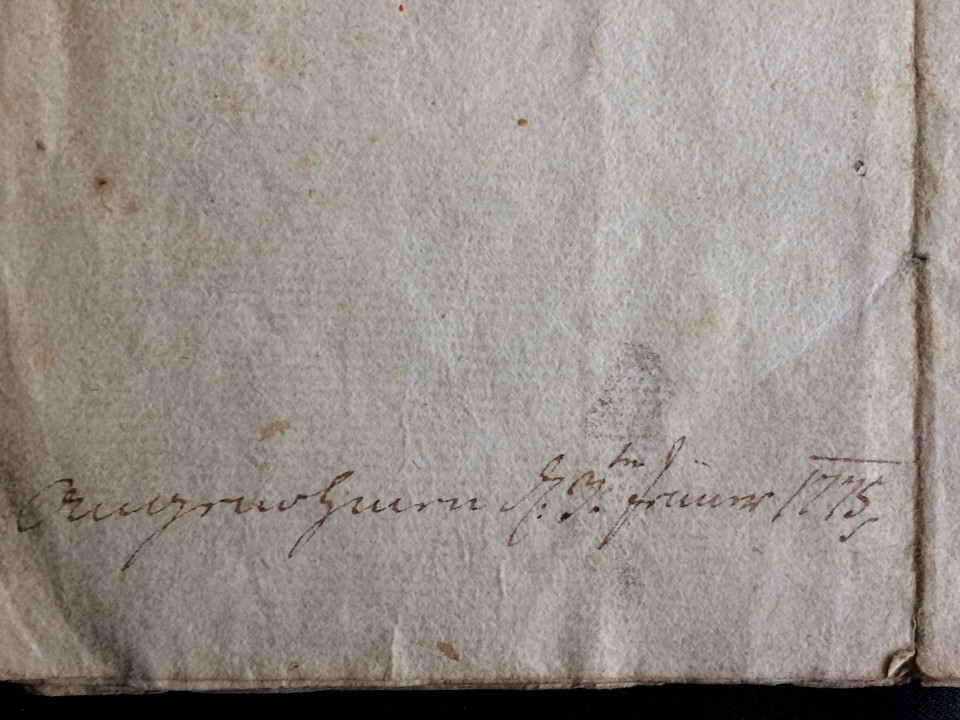 Angenohmen d. 3.ten Jänner 1775